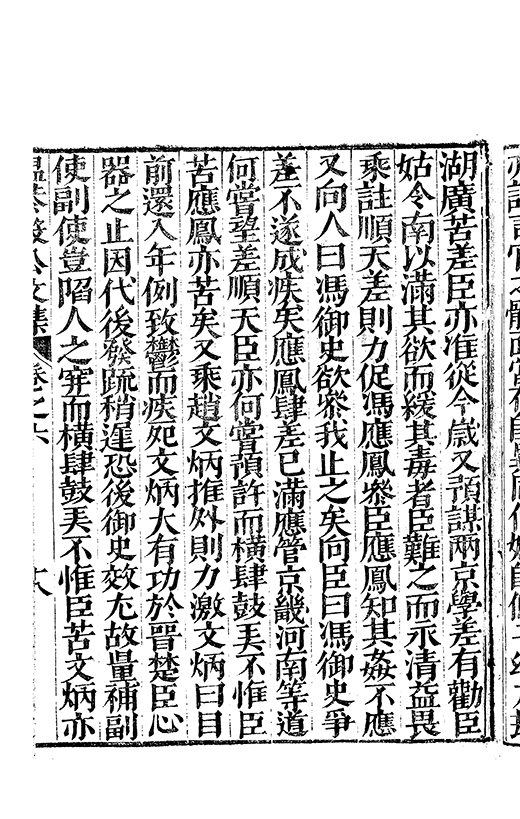 湖廣苦差臣亦准從今歲又預謀兩京學差有勸臣
姑令南以滿其欲而緩其毒者臣難之而永清益畏
乘註順天差則力促馮應鳳叅臣應鳳知其姦不應
又向人曰馮御史欲叅我止之矣向臣曰馮御史爭
差不遂成疾矣應鳳肆差已滿應管京畿河南等道
何嘗望差順天臣亦何嘗預許而橫肆鼓𠀋不惟臣
苦應鳳亦苦矣又乘趙文炳推外則力激文炳曰目
前還入年例致鬱而疾死文炳大有功於晉楚臣心
器之止因代後發疏稍遲恐後御史效尤故量補副
使副使豈陷人之穽而橫肆鼓𠀋不惟臣苦文炳亦
文集 卷之六 十八